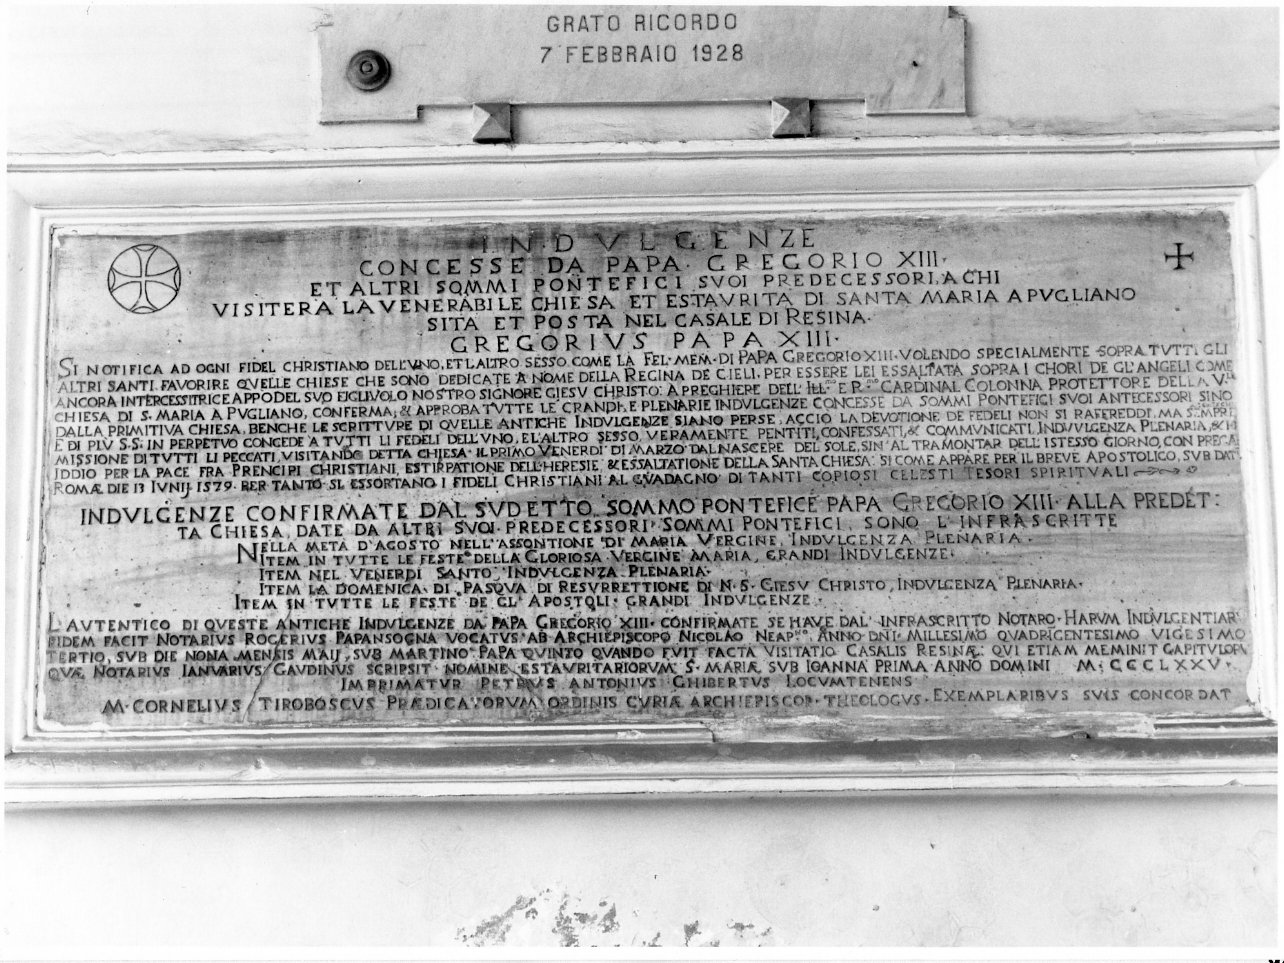 GRATO RICORDO
7 FEBBRAIO 1928
INDVLGENZE
CONCESSE DA PAPA GREGORIO XIII.
ET ALTRI SOMMI PONTEFICI SVOI PREDECESSORI, A CHI
VISITERA, LA VENERABILE CHIESA ET ESTAVRITA DI SANTA MARIA A PVGLIANO
SITA ET POSTA NEL CASALE DI RESINA.
GREGORIVS PAPA XIII.
SI NOTIFICA AD OGNI FIDEL CHRISTIANO DELL'VNO, ET L'ALTRO SESSO COME LA FEL. MEM. DI PAPA GREGORIO XIII. VOLENDO SPECIALMENTE SOPRA TVTTI GLI
ALTRI SANTI FAVORIRE QVELLE CHIESE CHE SONO DEDICATE A NOME DELLA REGINA DE CIELI. PER ESSERE LEI ESSALTATA SOPRA I CHORI DE GL'ANGELI COME
ANCORA INTERCESSITRICE APPO DEL SVO FIGLIVOLO NOSTRO SIGNORE GIESV CHRISTO: A PREGHIERE DELL'ILL.MO E R.MO CARDINAL COLONNA PROTETTORE DELLA V.
CHIESA DI S. MARIA A PVGLIANO, CONFERMA, & APPROBA TVTTE LE GRANDI, E PLENARIE INDVLGENZE CONCESSE DA SOMMI PONTEFICI SVOI ANTECESSORI SINO
DALLA PRIMITIVA CHIESA, BENCHE LE SCRITTVRE DI QVELLE ANTICHE INDVLGENZE SIANO PERSE. ACCIO LA DEVOTIONE DE FEDELI NON SI RAFEREDDI, MA SEMPRE
E DI PIÙ S. S. IN PERPETVO CONCEDE A TVTTI LI FEDELI DELL'VNO, E L'ALTRO SESSO, VERAMENTE PENTITI, CONFESSATI, & COMMVNICATI, INDVLGENZA PLENARIA, & RE
MISSIONE DI TVTTI LI PECCATI, VISITANDO DETTA CHIESA IL PRIMO VENERDI DI MARZO DAL NASCERE DEL SOLE, SIN'AL TRAMONTAR DELL'ISTESSO GIORNO, CON PREGAR
IDDIO PER LA PACE FRA PRENCIPI CHRISTIANI, ESTIRPATIONE DELL'HERESIE, & ESSALTATIONE DELLA SANTA CHIESA: SI COME APPARE PER IL BREVE APOSTOLICO, SVB DAT.
ROMÆ DIE 13 IVNIJ 1579. PER TANTO SI ESSORTANO I FEDELI CHRISTIANI AL GVADAGNO DI TANTI COPIOSI CELESTI TESORI SPIRITVALI
INDVLGENZE CONFIRMATE DAL SVDETTO, SOMMO PONTEFICE PAPA GREGORIO XIII. ALLA PREDET:
TA CHIESA, DATE DA ALTRI SVOI PREDECESSORI, SOMMI PONTEFICI, SONO L'INFRASCRITTE
NELLA METÀ D'AGOSTO NELL'ASSONTIONE DI MARIA VERGINE, INDVLGENZA PLENARIA.
ITEM IN TVTTE LE FESTE DELLA GLORIOSA VERGINE MARIA, GRANDI INDVLGENZE.
ITEM NEL VENERDI SANTO, INDVLGENZA PLENARIA.
ITEM LA DOMENICA DI PASQVA DI RESVRRETTIONE DI N. S. GIESV CHRISTO, INDVLGENZA PLENARIA.
ITEM IN TVTTE LE FESTE DE GL'APOSTOLI GRANDI INDVLGENZE.
L'AVTENTICO DI QVESTE ANTICHE INDVLGENZE DA PAPA GREGORIO XIII. CONFIRMATE SE HAVE DAL INFRASCRITTO NOTARO. HARVM INDVLGENTIAR.
FIDEM FACIT NOTARIVS ROGERIVS PAPANSOGNA VOCATVS AB ARCHIEPISCOPO NICOLAO NEAP.NO ANNO DNI MILLESIMO QVADRIGENTESIMO VIGESIMO
TERTIO, SVB DIE NONA MENSIS MAIJ, SVB MARTINO PAPA QVINTO, QVANDO FVIT FACTA VISITATIO CASALIS RESINÆ: QVI ETIAM MEMINIT CAPITVLOR.
QVÆ NOTARIVS IANVARIVS GAVDINVS SCRIPSIT NOMINE ESTAVRITARIORVM S. MARIÆ SVB IOANNA PRIMA ANNO DOMINI M.CCCLXXV.
IMPRIMATVR PETRVS ANTONIVS GHIBERTVS LOCVMTENENS
M. CORNELIVS TIROBOSCVS PRÆDICATORVM ORDINIS CVRIÆ ARCHIEPISCOP. THEOLOGVS. EXEMPLARIBVS SVIS CONCORDAT